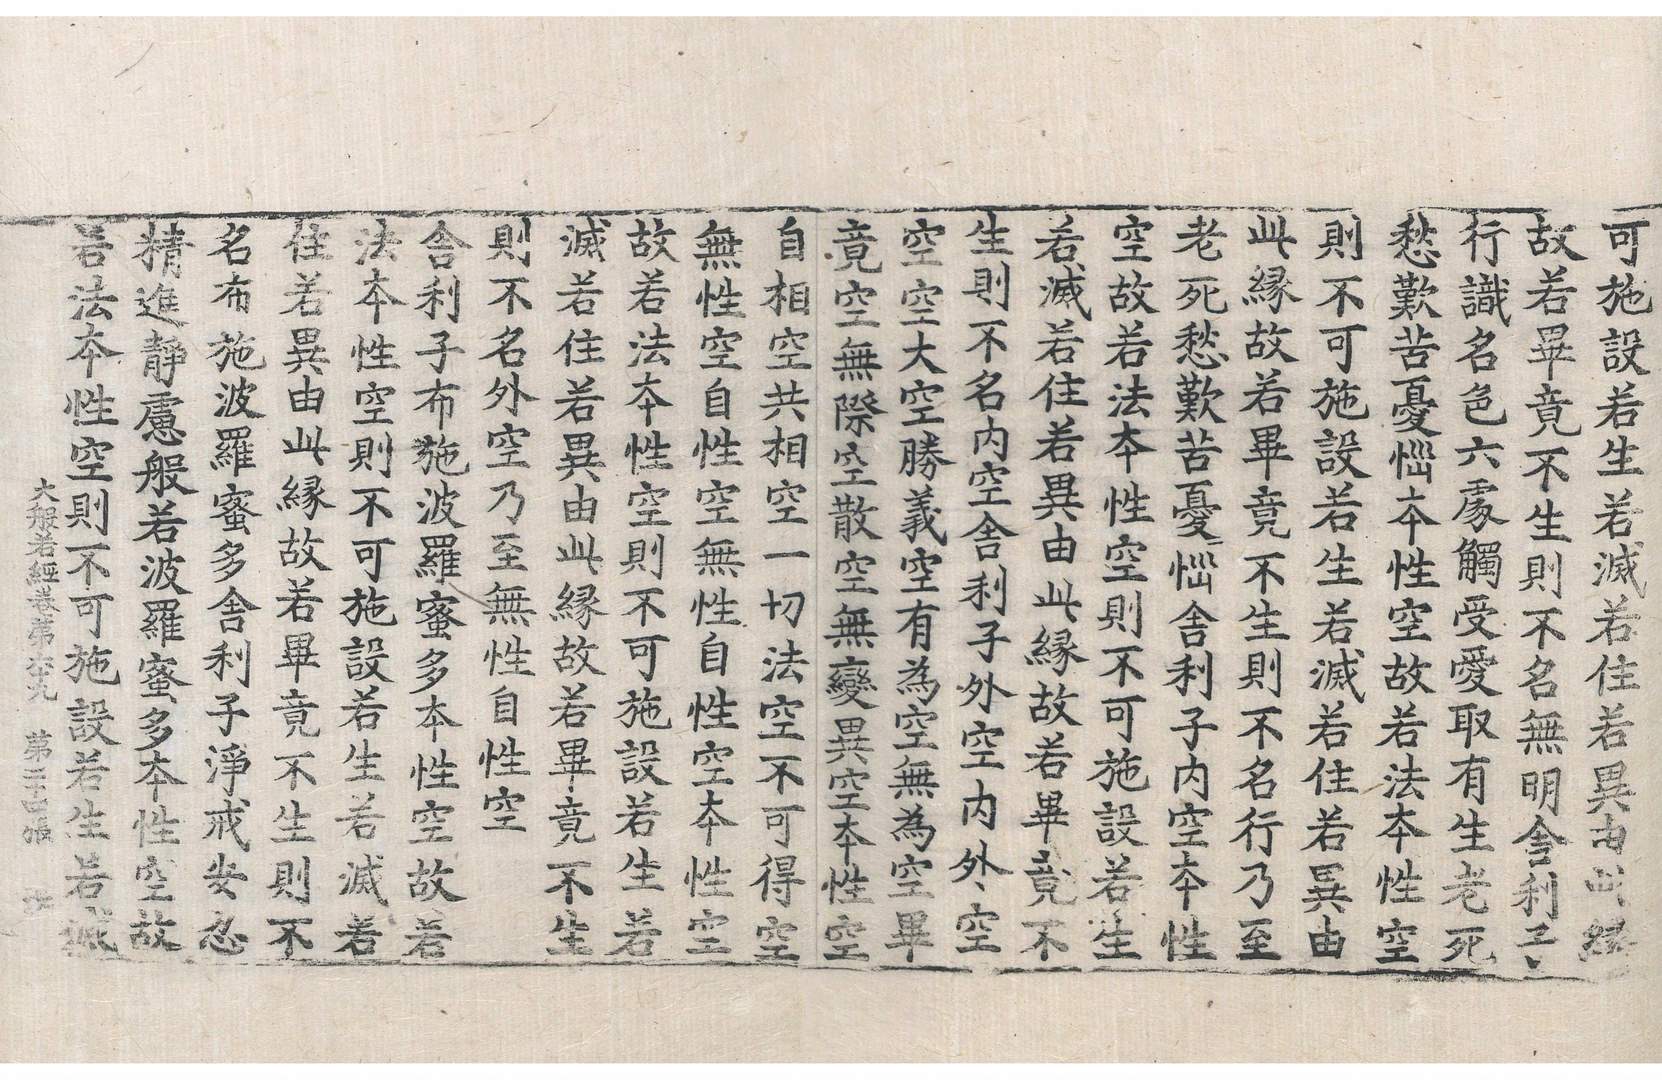 可施設若生若滅若住若異由此縁
故若畢竟不生則不名無明舍利子
行識名色六處觸受愛取有生老死
愁歎苦憂惱本性空故若法本性空
則不可施設若生若滅若住若異由
此縁故若畢竟不生則不名行乃至
老死愁歎苦憂惱舍利子内空本性
空故若法本性空則不可施設若生
若滅若住若異由此縁故若畢竟不
生則不名内空舍利子外空内外空
空空大空勝義空有為空無為空畢
竟空無際空散空無變異空本性空
自相空共相空一切法空不可得空
無性空自性空無性自性空本性空
故若法本性空則不可施設若生若
滅若住若異由此縁故若畢竟不生
則不名外空乃至無性自性空
舍利子布施波羅蜜多本性空故若
法本性空則不可施設若生若滅若
住若異由此縁故若畢竟不生則不
名布施波羅蜜多舍利子淨戒安忍
精進靜慮般若波羅蜜多本性空故
若法本性空則不可施設若生若滅
大般若經卷第六十九 第二十四張